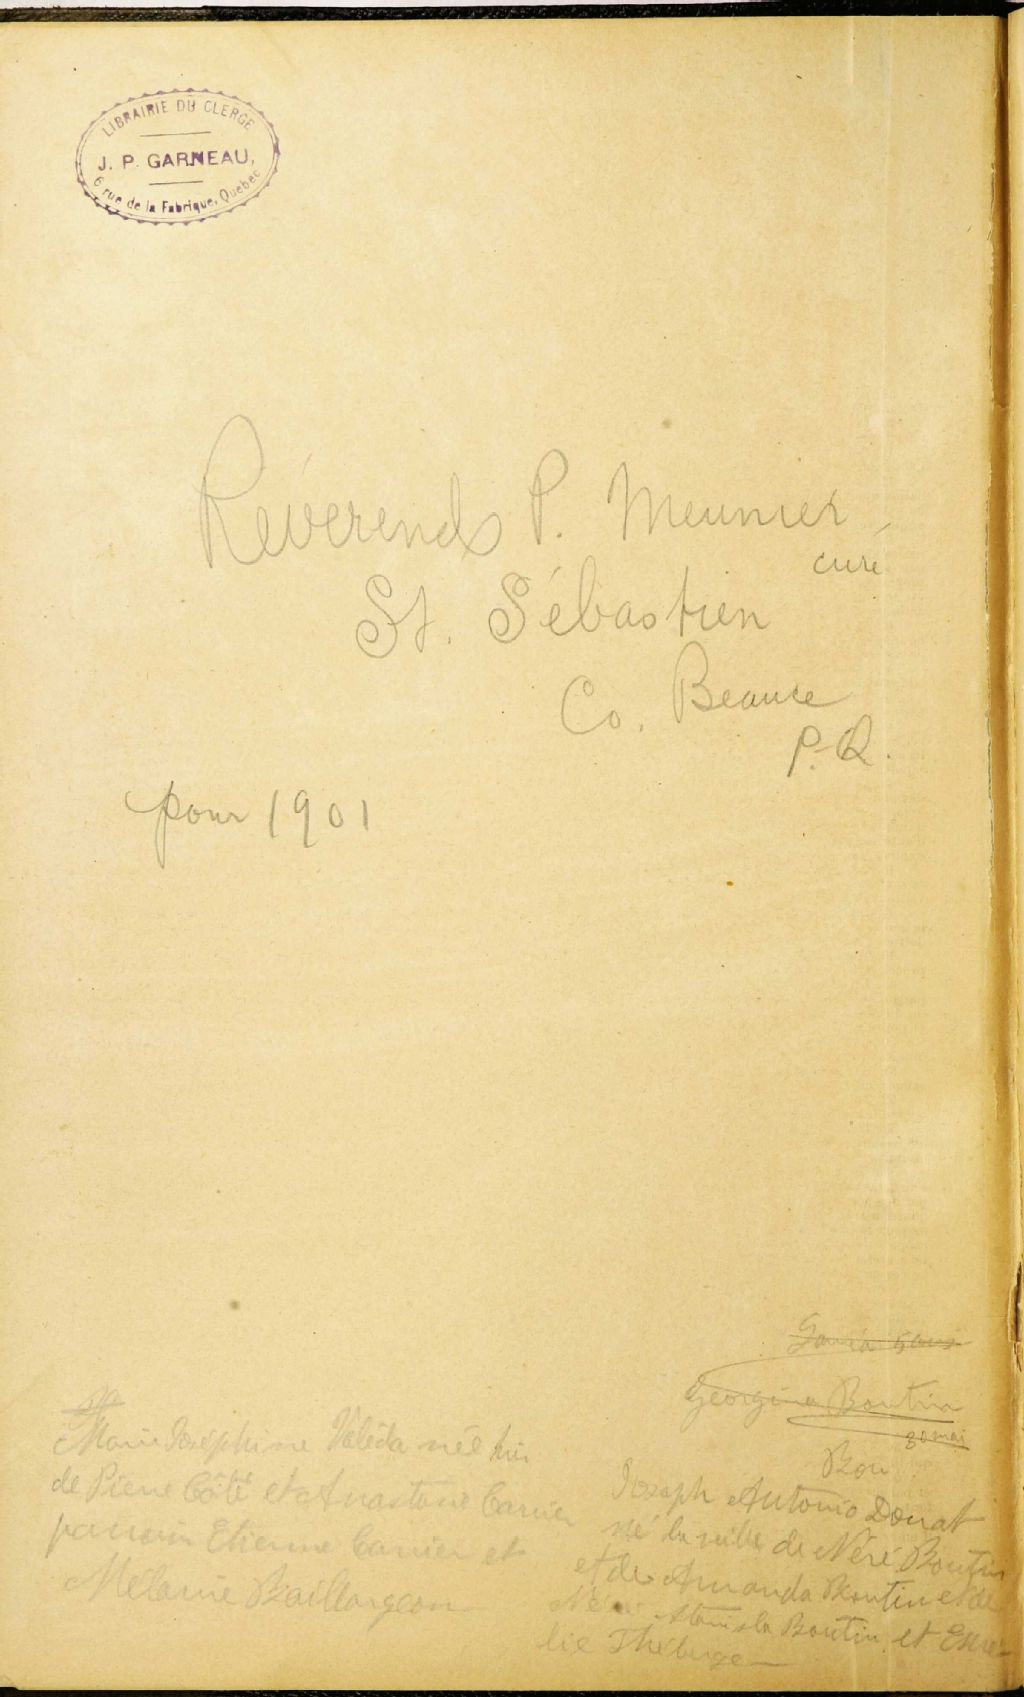 LIBRAIRIE DU CLERGE
J. P. GARNEAU,
6 rue de la Fabrique, Quebec
Révérend P. Meunier,
curé
St. Sébastien
Co. Beauce
P.Q.
pour 1901
Georgina Boutin
30 mai
Marie Joséphine Valéda née hier
de Pierre Côté et Anastasie Carrier
parrain Etienne Carrier et
Mélanie Baillargeon
Bou
Joseph Antonio Donat
né la veille de Néré Boutin
et de Amanda Boutin et de
Stanisla Boutin et Emé-
lie Théberge